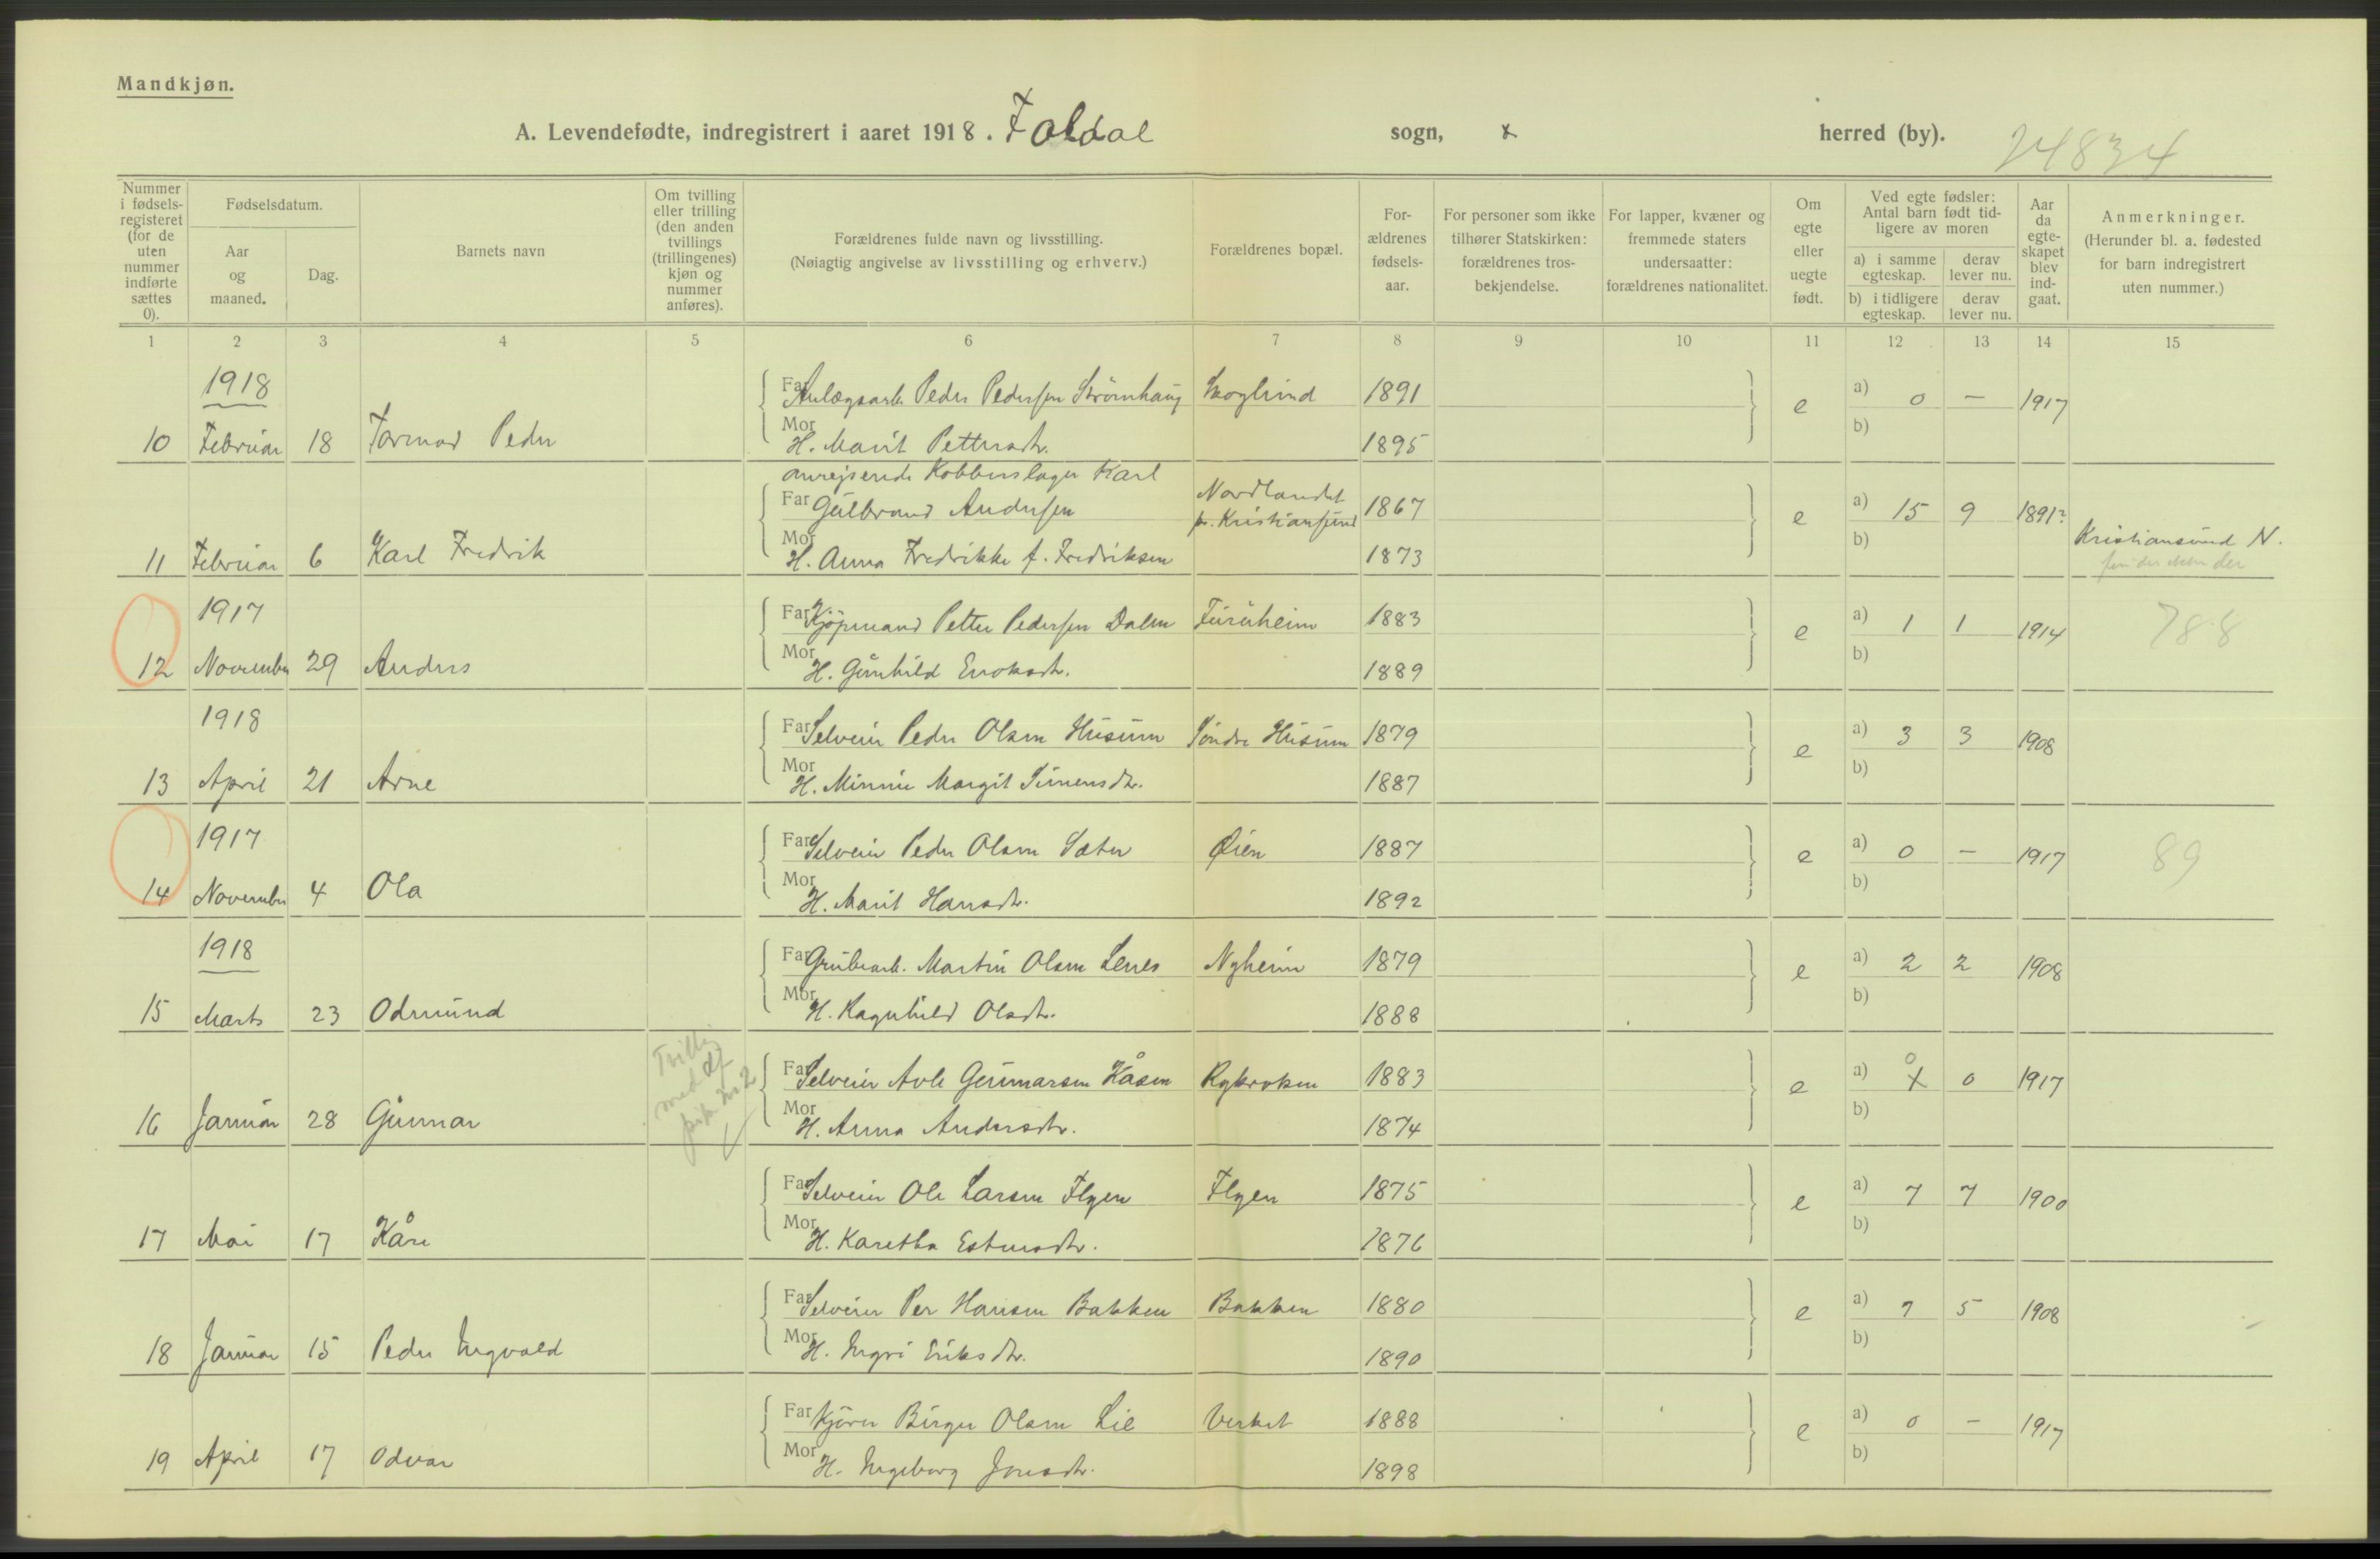 Mandkjøn.
A. Levendefødte, indregistrert i aaret 1918. Foldal sogn, x herred (by).
24834
Nummer i fødsels-registeret (for de uten nummer indførte sættes 0).
Fødselsdatum.
Aar og maaned.
Dag.
Barnets navn
Om tvilling eller trilling (den anden tvillings (trillingenes) kjøn og nummer anføres).
Forældrenes fulde navn og livsstilling.
(Nøiagtig angivelse av livsstilling og erhverv.)
Forældrenes bopæl.
For-ældrenes fødsels-aar.
For personer som ikke tilhører Statskirken: forældrenes tros-bekjendelse.
For lapper, kvæner og fremmede staters undersaatter: forældrenes nationalitet.
Om egte eller uegte født.
Ved egte fødsler: Antal barn født tid-ligere av moren
a) i samme egteskap. derav lever nu.
b) i tidligere egteskap. derav lever nu.
Aar da egte-skapet blev ind-gaat.
Anmerkninger.
(Herunder bl. a. fødested for barn indregistrert uten nummer.)
1 2 3 4 5 6 7 8 9 10 11 12 13 14 15
1918
Far Anlægsarb. Peder Pedersen Strömhaug Skoglund 1891 e a) 0 — 1917
10 Februar 18 Tormod Peder Mor H. Marit Pettersdtr. 1895 b)
omreisende Kobberslager Karl
Far Gulbrand Andersen Nordlandet pr. Kristiansund 1867 e a) 15 9 1891?
11 Februar 6 Karl Fredrik Mor H. Anna Fredrikke f. Fredriksen 1873 b) Kristiansund N.
1917
Far Kjöpmand Petter Pedersen Dalen Furuheim 1883 e a) 1 1 1914 788
12 November 29 Anders Mor H. Gunhild Enoksdtr. 1889 b)
1918
Far Selveier Peder Olsen Husum Söndre Husum 1879 e a) 3 3 1908
13 April 21 Arne Mor H. Minnie Margit Simensdtr. 1887 b)
1917
Far Selveier Peder Olsen Sæter Øien 1887 e a) 0 — 1917 89
14 November 4 Ola Mor H. Marit Hansdtr. 1892 b)
1918
Far Grubearb. Martin Olsen Lenes Nyheim 1879 e a) 2 2 1908
15 Marts 23 Odmund Mor H. Ragnhild Olsdtr. 1888 b)
Tvilling med df pike No 2
Far Selveier Avle Gunnarsen Kåsen Rykroken 1883 e a) 0 x 0 1917
16 Januar 28 Gunnar Mor H. Anna Andersdtr. 1874 b)
Far Selveier Ole Larsen Flgen Flgen 1875 e a) 7 7 1900
17 Mai 17 Kåre Mor H. Karetha Estensdtr. 1876 b)
Far Selveier Per Hansen Bakken Bakken 1880 e a) 7 5 1908
18 Januar 15 Peder Ingvald Mor H. Ingri Eriksdtr. 1890 b)
Far Kjörer Birger Olsen Lie Verket 1888 e a) 0 — 1917
19 April 17 Odvar Mor H. Ingeborg Jonsdtr. 1898 b)